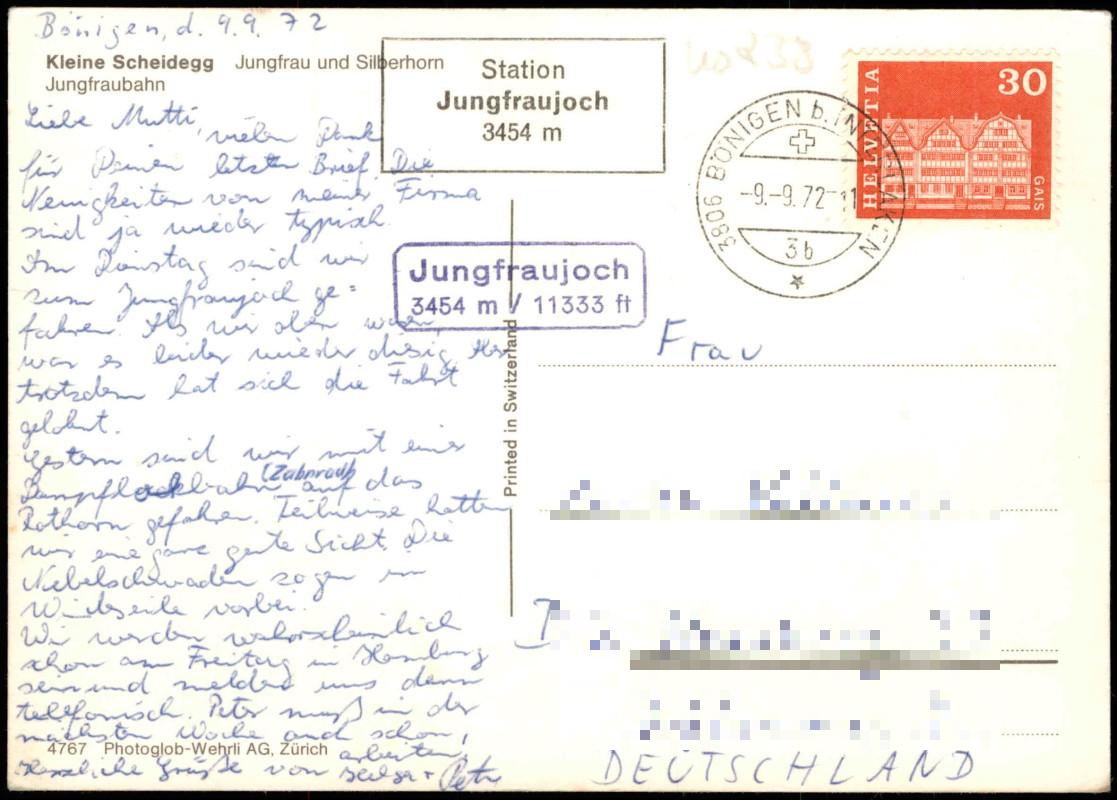 Bönigen, d. 9.9.72
Kleine Scheidegg Jungfrau und Silberhorn
Jungfraubahn
Station
Jungfraujoch
3454 m
30
HELVETIA
GAIS
3806 BÖNIGEN b. INTERLAKEN
-9.-9.72-11
3b
Jungfraujoch
3454 m / 11333 ft
Liebe Mutti, vielen Dank
für Deinen letzten Brief. Die
Neuigkeiten von meiner Firma
sind ja wieder typisch.
Am Dienstag sind wir
zum Jungfraujoch ge=
fahren. Als wir oben waren,
war es leider wieder diesig. Aber
trotzdem hat sich die Fahrt
gelohnt.
Gestern sind wir mit einer
(Zahnrad)
Dampflockbahn auf das
Rothorn gefahren. Teilweise hatten
wir eine ganz gute Sicht. Die
Nebelschwaden zogen in
Windeseile vorbei.
Wir werden wahrscheinlich
schon am Freitag in Hamburg
sein und melden uns dann
telefonisch. Peter muß in der
nächsten Woche auch schon
arbeiten,
4767 Photoglob-Wehrli AG, Zürich
Herzliche Grüße von + Peter
Printed in Switzerland
Frau
D
DEUTSCHLAND